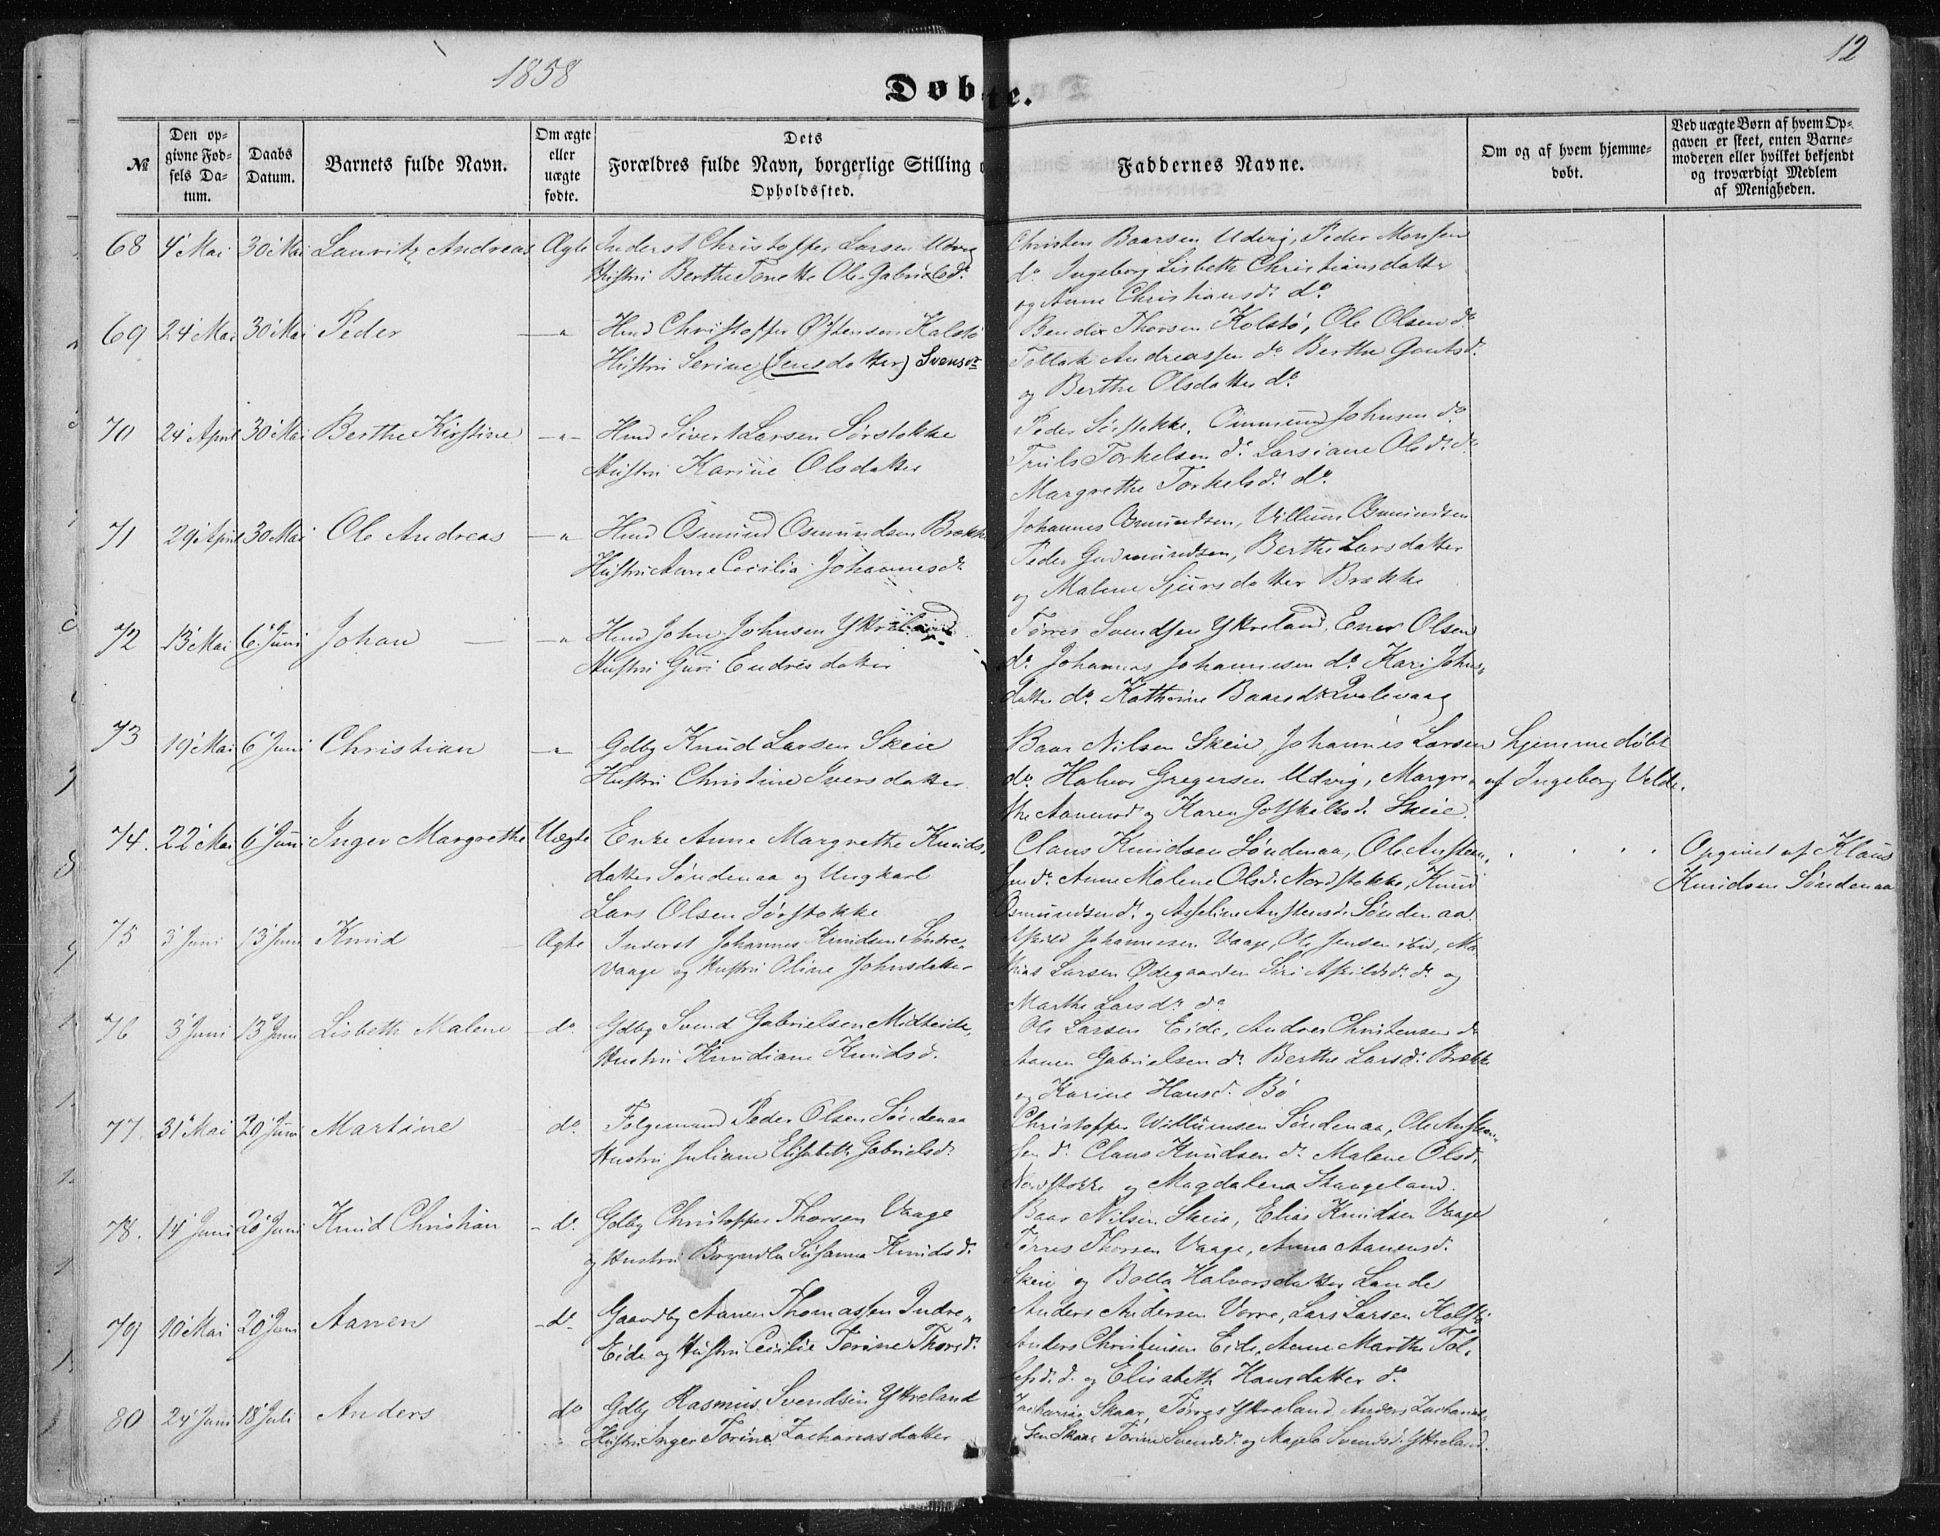 1858
12
Døbte.
№
Den opgivne Fødsels Datum.
Daabs Datum.
Barnets fulde Navn.
Om ægte eller uægte fødte.
Dets Forældres fulde Navn, borgerlige Stilling o
Opholdssted.
Faddernes Navne.
Om og af hvem hjemmedøbt.
Ved uægte Børn af hvem Opgaven er skeet, enten Barnemoderen eller hvilket bekjendt og troværdigt Medlem af Menigheden.
68 4 Mai 30 Mai Lauritz Andreas Ægte Inderst Christoffer Larsen Udvig
Hustru Berthe Tonette Ole Gabrielsd.
Christen Baarsen Udvig, Peder Monsen
do Ingeborg Lisbeth Christiansdatter
og Anne Christiansd. do
69 24 Mai 30 Mai Peder Hmd Christoffer Østensen Kolstø
Hustru Serine (Jensdatter) Svensdr
Bendix Thorsen Kolstø, Ole Olsen do
Tollak Andreassen do Berthe Gautsd.
og Berthe Olsdatter do
70 24 April 30 Mai Berthe Kirstine Hmd Sivert Larsen Sørstokke
Hustru Karine Olsdatter
Peder Sørstokke, Johnsen do
Truls Torkelsen do Larsiane Olsd. do
Margrethe Torkelsd. do
71 29 April 30 Mai Ole Andreas Hmd Osmund Osmundsen Brække
Hustru Anne Cecilia Johannesd.
Johannes Osmundsen, Villum Osmundsen
Peder Gudmundsen, Berthe Larsdatter
og Malene Sjursdatter Brække
72 13 Mai 6 Juni Johan Hmd John Johnsen Yttreland
Hustru Guri Endresdatter
Tørres Svendsen Yttreland, Olsen
do Johannes Johannesen do Kari Johnsdatter
do Kathrine Baarsd. Qvalevaag
73 19 Mai 6 Juni Christian Gdby Knud Larsen Skeie
Hustru Christine Iversdatter
Baar Nilsen Skeie, Johannes Larsen
do Halvor Gregersen Udvig, Margrethe
Aanensd. og Karen Gotskalksd. Skeie.
hjemmedøbt
af Ingeborg Velde.
74. 22 Mai 6 Juni Inger Margrethe Uægte Enke Anne Margrethe Knudsdatter
Søndenaa og Ungkarl
Lars Olsen Sørstokke
Claus Knudsen Søndenaa, Ole Austensen
do Anne Malene Olsd. Nordstokke, Knud
Osmundsen do og Asseline Austensd. Søndenaa.
Opgivet af Klaus
Knudsen Søndenaa
75 3 Juni 13 Juni Knud Ægte Inderst Johannes Knudsen Søndre
Vaage og Hustru Oline Johnsdatter
Askild Johannesen Vaage, Ole Jensen
Larsen Ødegaarden Siri Askildsd. do og
Marthe Larsd. do
76 3 Juni 13 Juni Lisbeth Malene do Gdby Svend Gabrielsen Mideide
Hustru Knudiane Knudsd.
Ole Larsen Eide, Anders Christensen do
Aanen Gabrielsen do Berthe Larsd. Brække
og Karine Hansd. Bø
77. 31 Mai 20 Juni Martine do Følgemand Peder Olsen Søndenaa
Hustru Juliane Elisabeth Gabrielsd.
Christoffer Willumsen Søndenaa, Ole Austensen
do Claus Knudsen do Malene Olsd.
Nordstokke og Magdalena Stangeland.
78. 14 Juni 20 Juni Knud Christian do Gdby Christoffer Thorsen Vaage
og Hustru Susanna Knudsd.
Baar Nilsen Skeie, Elias Knudsen Vaage
Tørres Thorsen Vaage, Anna Aanensd.
Skeie og Bolla Halvorsdatter Lande
79 10 Mai 20 Juni Aanen do Gaardby Aanen Thomassen Indre
Eide og Hustru Cecilie Torine Thorsd.
Anders Andersen Vorre, Lars Larsen Kolstø
Anders Christensen Eide, Anne Marthe
do og Elisabeth Hansdatter do
80 24 Juni 18 Juli Anders do Gdby Rasmus Svendsen Yttreland
Hustru Inger Torine Zachariasdatter
Zacharias Skaar, Tørres Yttreland, Anders Zachariassen
Skaar Torine Svendsd. og Svendsd. Yttreland.